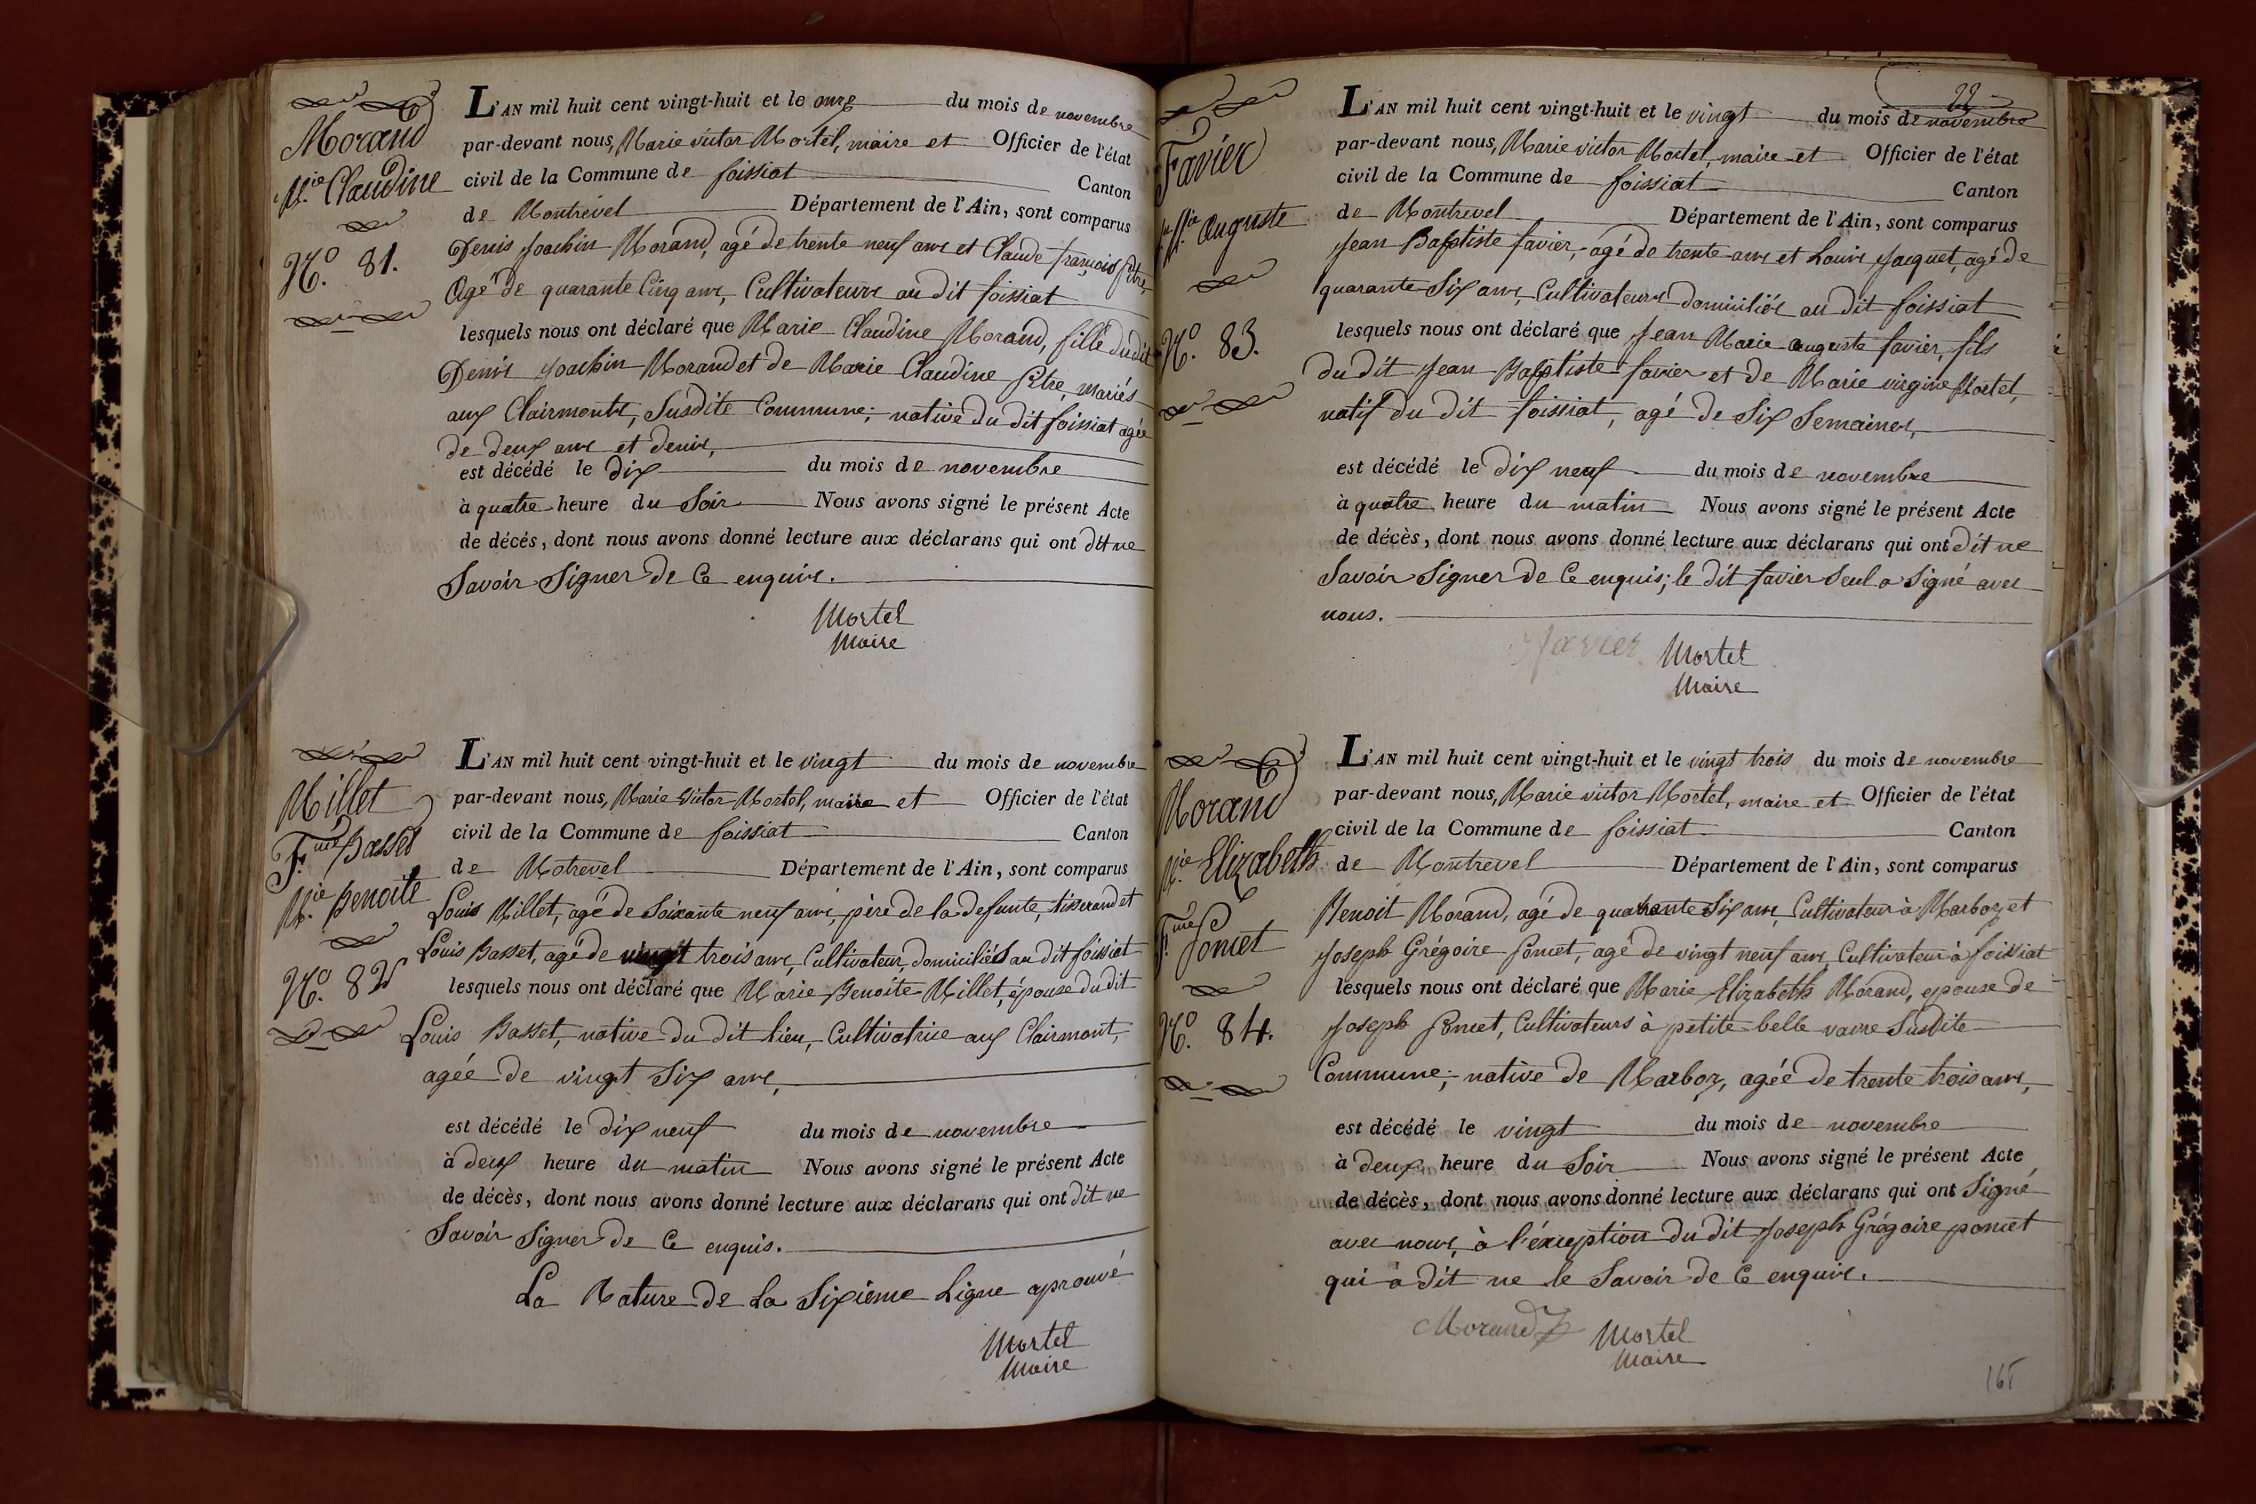 Morand
M.ie Claudine
N.o 81.
L'AN mil huit cent vingt-huit et le onze du mois de novembre
par-devant nous, Marie victor Mortel, maire et Officier de l'état
civil de la Commune de foissiat Canton
de Montrevel Département de l'Ain, sont comparus
Denis Joachin Morand, agé de trente neuf ans et Claude françois pitre,
Agé de quarante Cinq ans, Cultivateurs au dit foissiat
lesquels nous ont déclaré que Marie Claudine Morand, fille du dit
Denis Joachin Morand et de Marie Claudine pitre, mariés
aux Clairmonts, Susdite Commune; native du dit foissiat agée
de deux ans et demis,
est décédé le dix du mois de novembre
à quatre heure du Soir Nous avons signé le présent Acte
de décés, dont nous avons donné lecture aux déclarans qui ont dit ne
Savoir Signer de Ce enquis.
Mortel
Maire
Millet
F.me Basset
M.ie Benoite
N.o 82
L'AN mil huit cent vingt-huit et le vingt du mois de novembre
par-devant nous, Marie Victor Mortel, maire et Officier de l'état
civil de la Commune de foissiat Canton
de Motrevel Département de l'Ain, sont comparus
Louis Millet, agé de Soixante neuf ans, père de la defunte, tisserand et
Louis Basset, agé de vingt trois ans, Cultivateur, domiciliés au dit foissiat
lesquels nous ont déclaré que Marie Benoite Millet, épouse du dit
Louis Basset, native du dit lieu, Cultivatrice aux Clairmont,
agée de vingt Six ans,
est décédé le dix neuf du mois de novembre
à deux heure du matin Nous avons signé le présent Acte
de décès, dont nous avons donné lecture aux déclarans qui ont dit ne
Savoir Signer de Ce enquis.
La Rature de la Sixième Ligne aprouvé
Mortel
Maire
22
Favier
J.n M.ie auguste
N.o 83.
L'AN mil huit cent vingt-huit et le vingt du mois de novembre
par-devant nous, Marie victor Mortel, maire et Officier de l'état
civil de la Commune de foissiat Canton
de Montrevel Département de l'Ain, sont comparus
Jean Baptiste favier, agé de trente ans et Louis Jacquet, agé de
quarante Six ans, Cultivateurs domiciliés au dit foissiat
lesquels nous ont déclaré que Jean Marie auguste favier, fils
du dit Jean Baptiste favier et de Marie virgine Mortel,
natif du dit foissiat, agé de Six Semaines,
est décédé le dix neuf du mois de novembre
à quatre heure du matin Nous avons signé le présent Acte
de décès, dont nous avons donné lecture aux déclarans qui ont dit ne
Savoir Signer de Ce enquis; le dit favier Seul a Signé avec
nous.
Favier Mortel
Maire
Morand
M.ie Elizabeth
F.me Poncet
N.o 84.
L'AN mil huit cent vingt-huit et le vingt trois du mois de novembre
par-devant nous, Marie victor Mortel, maire et Officier de l'état
civil de la Commune de foissiat Canton
de Montrevel Département de l'Ain, sont comparus
Benoit Morand, agé de quarante Six ans, Cultivateur à Marboz, et
Joseph Grégoire poncet, agé de vingt neuf ans, Cultivateur à foissiat
lesquels nous ont déclaré que Marie Elizabeth Morand, epouse de
Joseph poncet, Cultivateurs à petite belle vavre Susdite
Commune; native de Marboz, agée de trente trois ans,
est décédé le vingt du mois de novembre
à deux heure du Soir Nous avons signé le présent Acte
de décès, dont nous avons donné lecture aux déclarans qui ont Signé
avec nous, à l'éxception du dit Joseph Grégoire poncet
qui à dit ne le Savoir de Ce enquis.
Morand Mortel
Maire